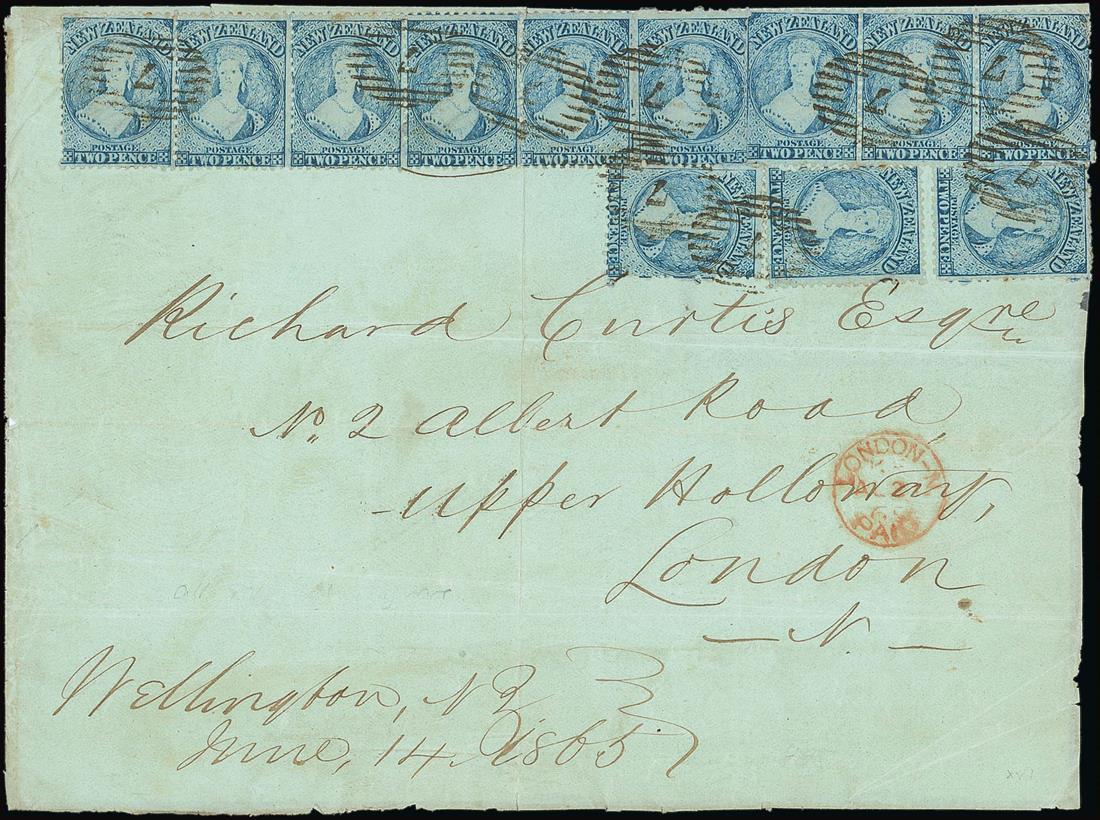 NEW ZEALAND NEW ZEALAND NEW ZEALAND NEW ZEALAND NEW ZEALAND NEW ZEALAND NEW ZEALAND NEW ZEALAND NEW ZEALAND
POSTAGE POSTAGE POSTAGE POSTAGE POSTAGE POSTAGE POSTAGE POSTAGE POSTAGE
TWO PENCE TWO PENCE TWO PENCE TWO PENCE TWO PENCE TWO PENCE TWO PENCE TWO PENCE TWO PENCE
7 7 7 7 7 7 7
NEW ZEALAND POSTAGE TWO PENCE
NEW ZEALAND POSTAGE TWO PENCE
NEW ZEALAND POSTAGE TWO PENCE
Richard Curtis Esqre
No. 2 Albert Road,
LONDON-N
PAID
- Upper Holloway,
London
- N. -
Wellington, NZ
June, 14, 1865
xv1